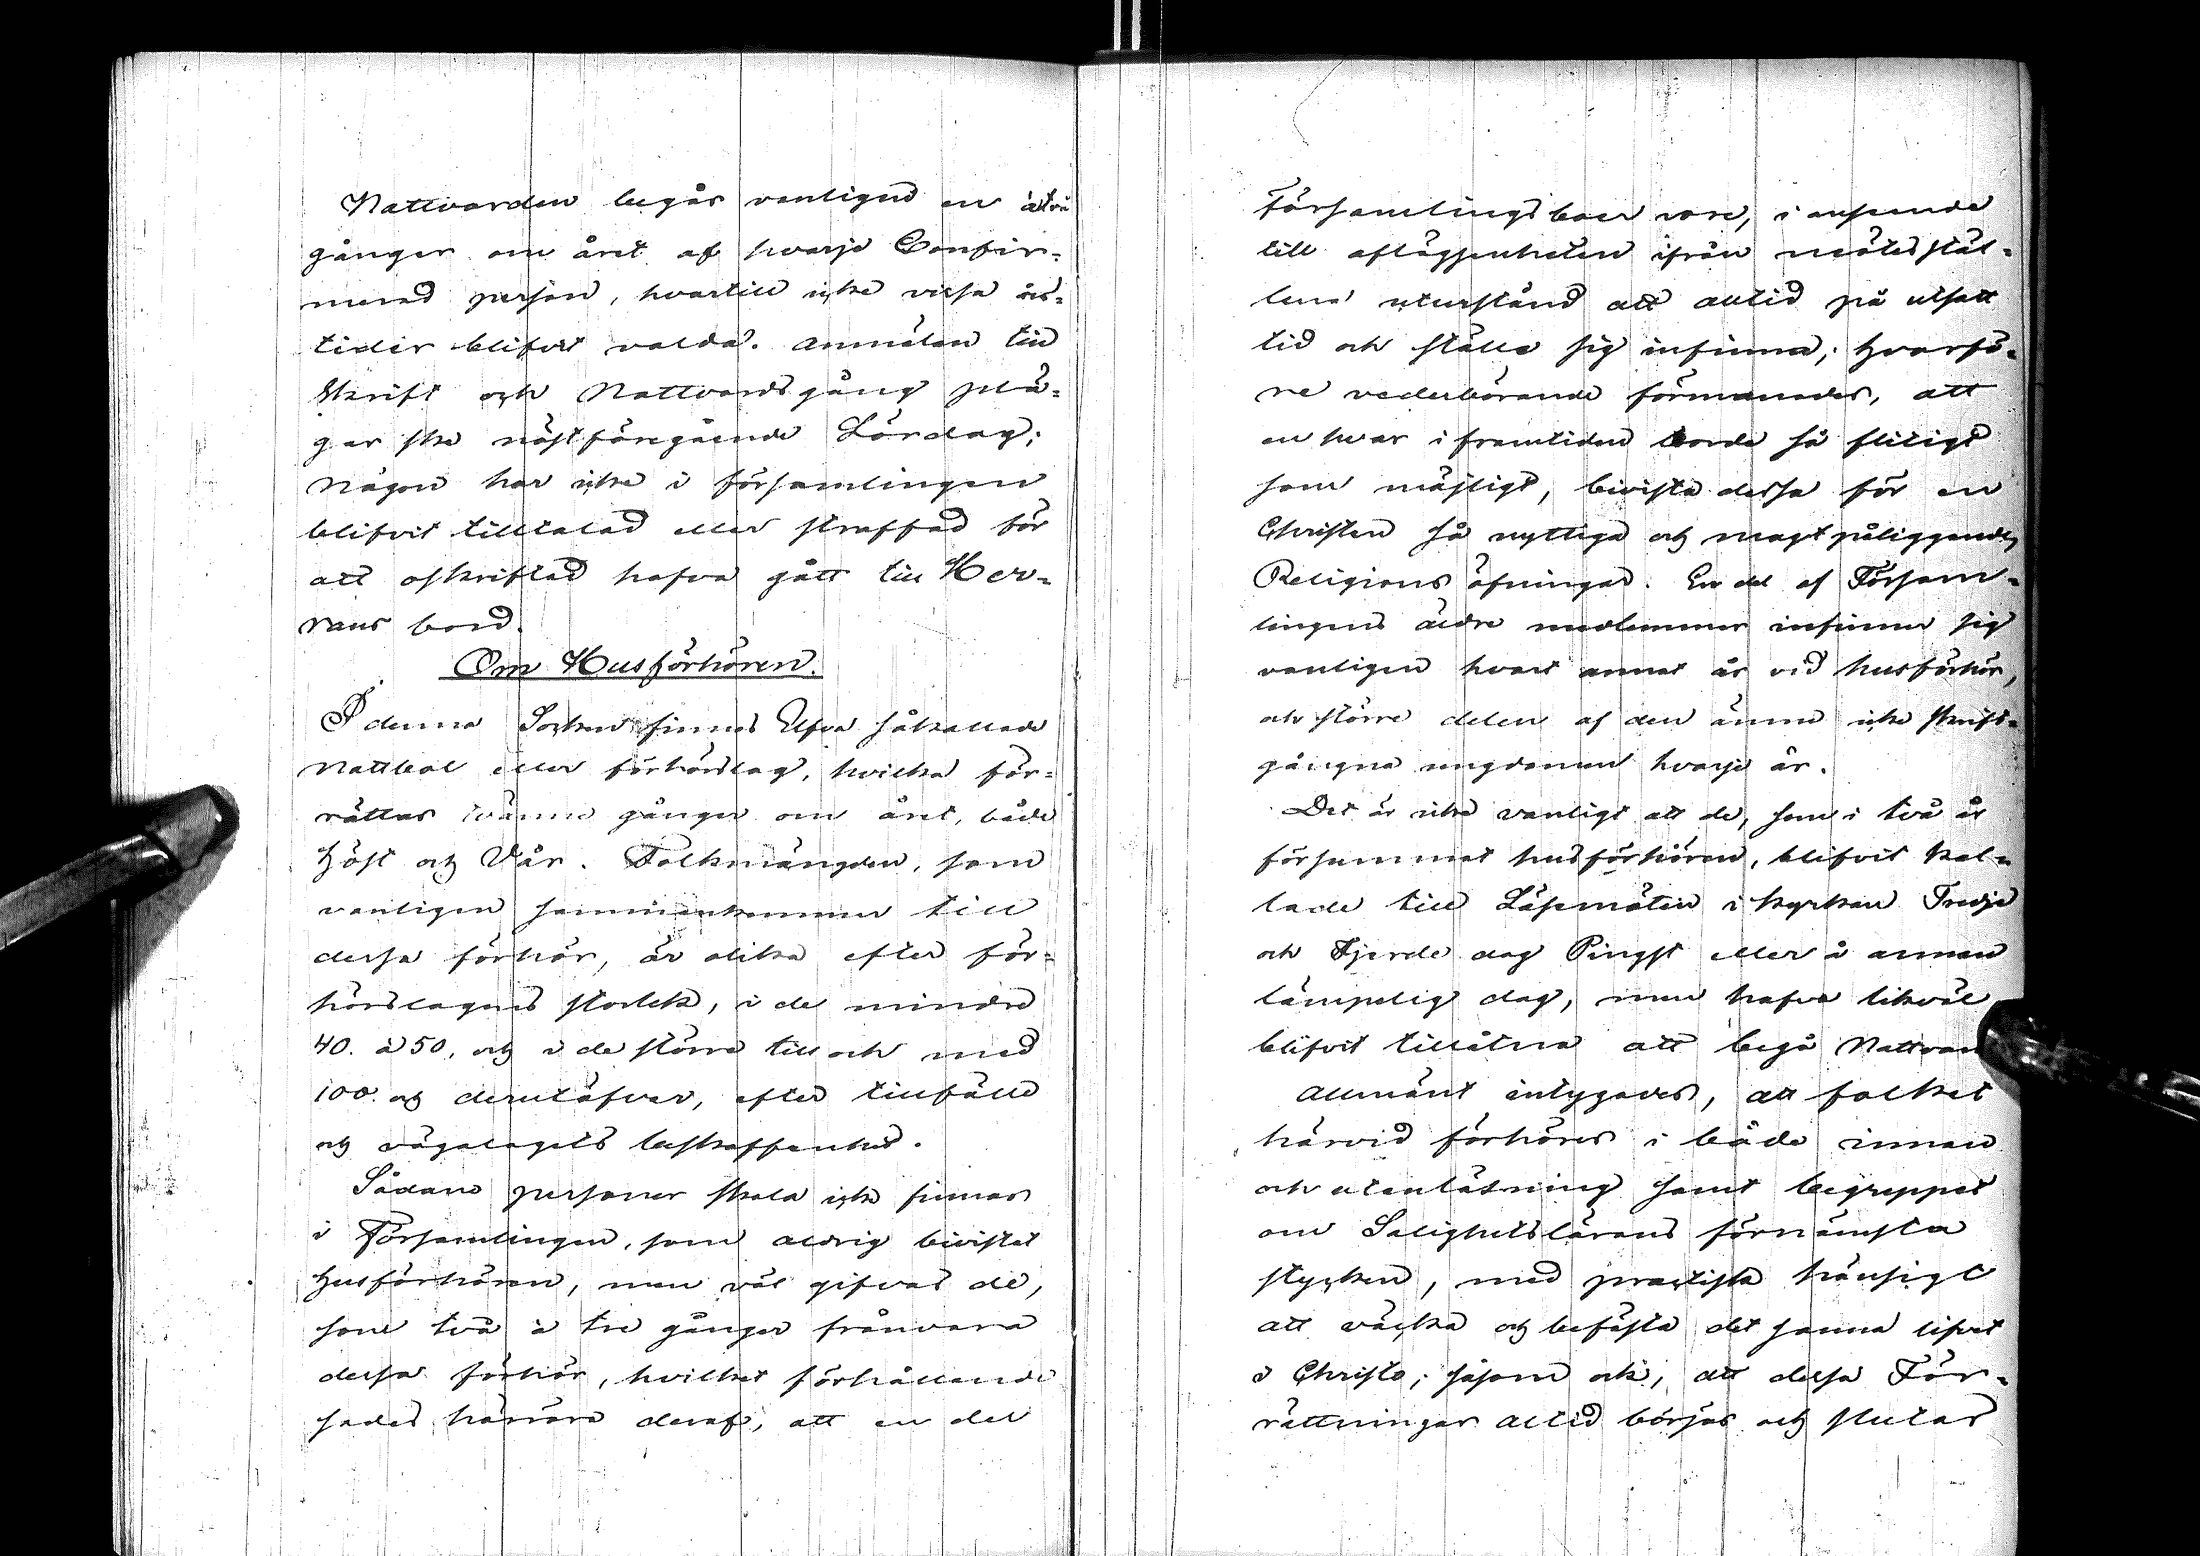 Nattvarden begås vanligen en à två
gånger om året af hvarje Confir-
merad person, hvartill icke vissa års-
tider blifvit valda. Anmälan till
Skrift och Nattvardsgång plä-
gar ske nästföregående Lördag;
någon har icke i församlingen
blifvit tilltalad eller straffad för
att oskriftad hafva gått till Her-
rans bord.
Om Husförhören.
I denna Socken finnas Elfva såkallade
Nattbol eller förhörslag, hvilka för-
rättas tvänne gånger om året, både
Höst och Vår. Folkmängden, som
vanligen sammankommer till
dessa förhör, är olika efter för-
hörslagens storlek, i de mindre
40. à 50, och i de större till och med
100. och derutöfver, efter tillfälle
och vägalagets beskaffenhet.
Sådane personer skola icke finnas
i Församlingen, som aldrig bivistat
Husförhören, men väl gifvas de,
som två à tre gånger frånvara
dessa förhör, hvilket förhållande
sades härröra deraf, att en del
Församlingsboer vore, i anseende
till aflägsenheten ifrån mötesstäl-
lena uturstånd att altid på utsatt
tid och ställe sig infinna; Hvarfö-
re vederbörande förmanades, att
en hvar i framtiden borde så flitigt
som möjligt, bivista dessa för en
Christen så nyttiga och magtpåliggande
Religionsöfningar. En del af Försam-
lingens äldre medlemmar infinner sig
vanligen hvart annat år vid husförhör,
och större delen af den ännu icke skrift-
gångna ungdomen hvarje år.
Det är icke vanligt att de, som i två år
försummat husförhören, blifvit kal-
lade till Läsmöten i kyrkan Tredje
och Fjerde dag Pingst eller å annan
lämpelig dag, men hafva likväl
blifvit tillåtna att begå Nattvard
Allmänt intygades, att folket
härvid förhöres i både innan
och utanläsning samt begreppet
om Salighetslärans förnämsta
stycken, med practiskt hänsigt
att väcka och befästa det sanna lifvet
i Christo; såsom ock, att dessa För-
rättningar altid börjas och slutas